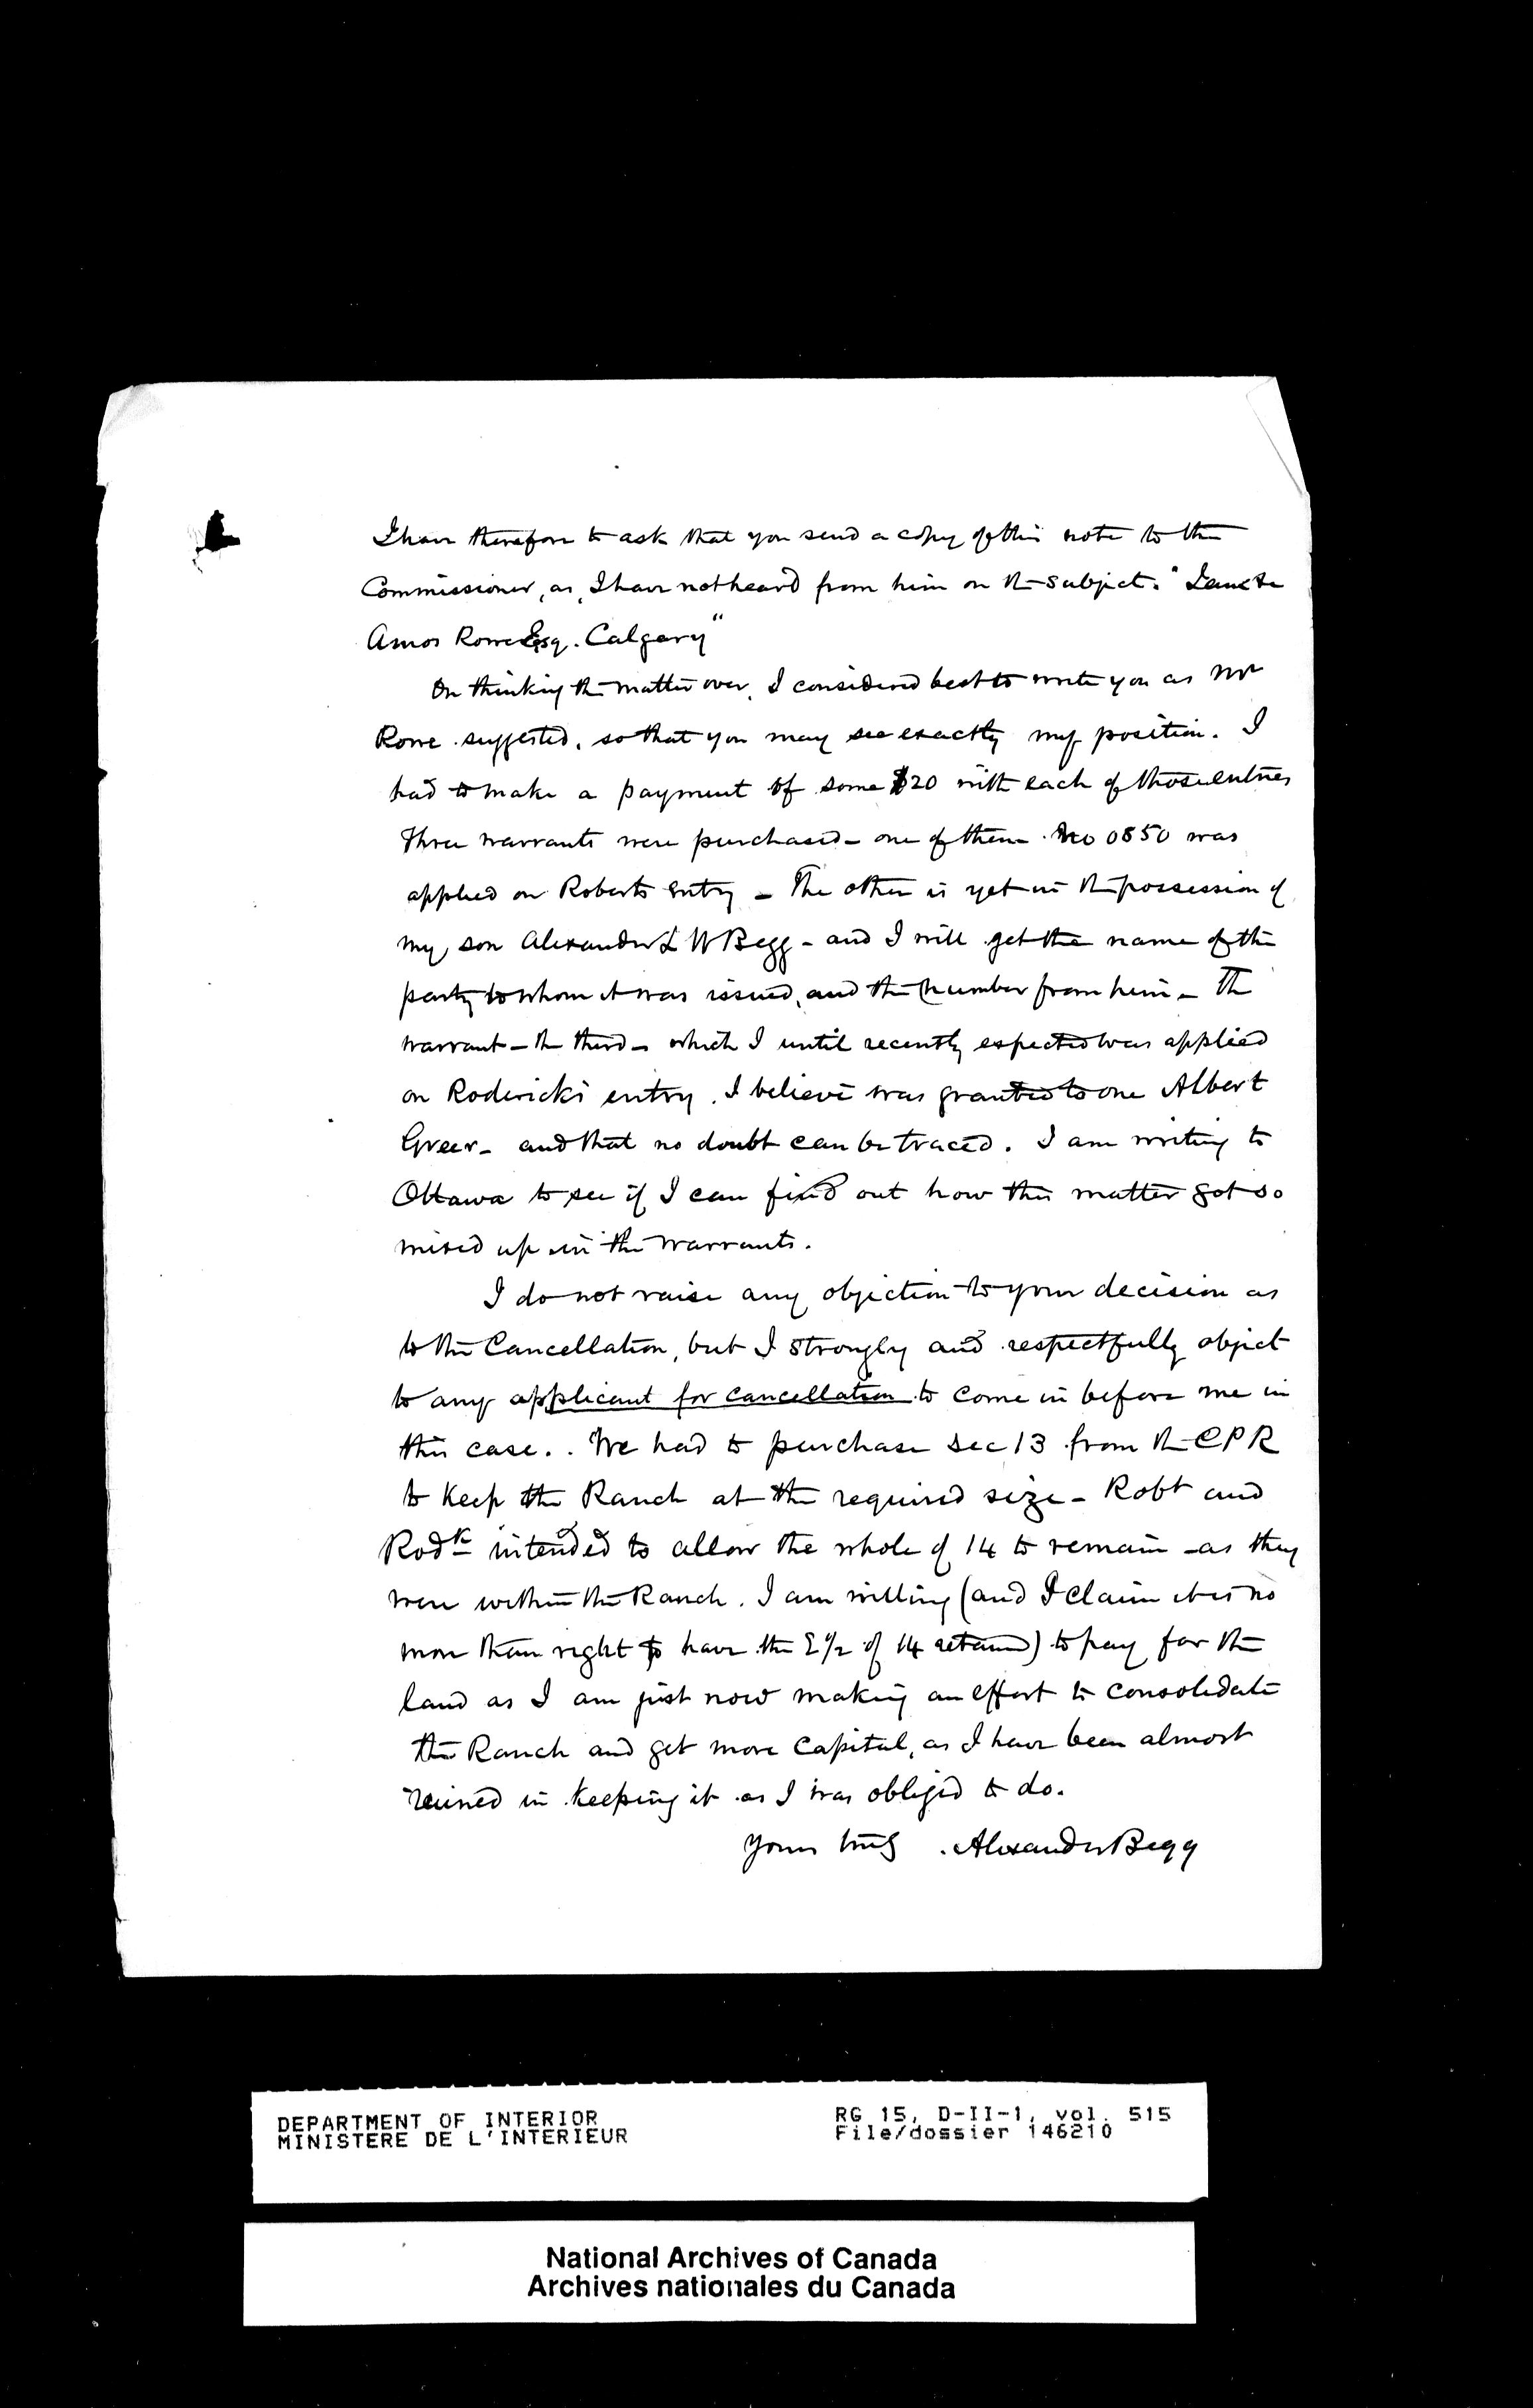 I have therefore to ask that you send a copy of this note to the
Commissioner, as, I have not heard from him on the subject. "I am &c
Amos Rowe Esq. Calgary"
On thinking the matter over, I considered best to write you as Mr
Rowe suggested, so that you may see exactly my position. I
had to make a payment of some $20 with each of those entries
Three warrants were purchased - one of them No 0850 was
applied on Roberts entry - The other is yet in the possession of
my son Alexander L W Begg - and I will get the name of the
party to whom it was issued, and the number from him - The
warrant - the third - which I until recently expected was applied
on Roderick's entry, I believe was granted to one Albert
Greer - and that no doubt can be traced. I am writing to
Ottawa to see if I can find out how this matter got so
mixed up in the warrants.
I do not raise any objection to your decision as
to the Cancellation, but I strongly and respectfully object
to any applicant for cancellation to come in before me in
this case. . We had to purchase Sec 13 from the CPR
to keep the Ranch at the required size - Robt and
Rodk intended to allow the whole of 14 to remain - as they
were within the Ranch. I am willing (and I claim it is no
more than right to have the E 1/2 of 14 retained) to pay for the
land as I am just now making an effort to consolidate
the Ranch and get more Capital, as I have been almost
ruined in keeping it as I was obliged to do.
Yours truly . Alexander Begg
DEPARTMENT OF INTERIOR
MINISTERE DE L'INTERIEUR
RG 15, D-II-1, vol. 515
File/dossier 146210
National Archives of Canada
Archives nationales du Canada